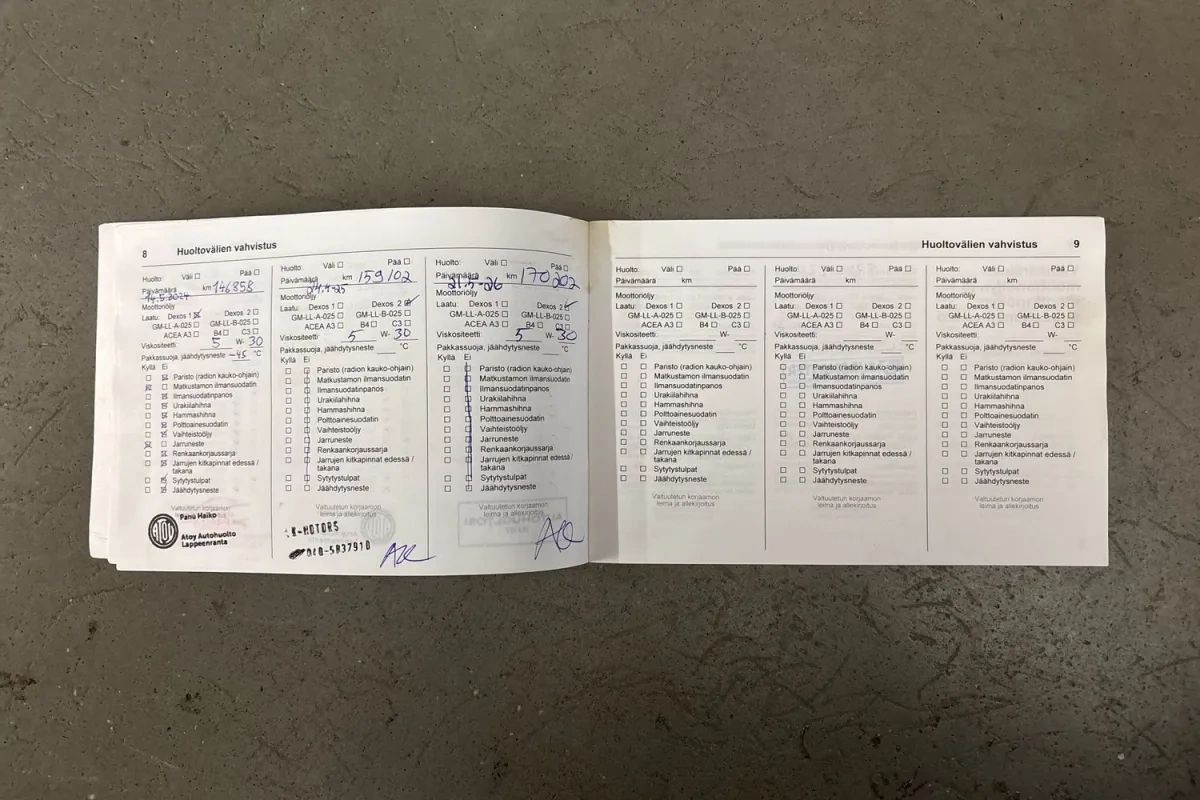 8 Huoltovälien vahvistus
Huolto: Väli ☐ Pää ☐
Päivämäärä km 146858
14.5.2024
Moottoriöljy
Laatu: Dexos 1 ☒ Dexos 2 ☐
GM-LL-A-025 ☐ GM-LL-B-025 ☐
ACEA A3 ☐ B4 ☐ C3 ☐
Viskositeetti: 5 W- 30
Pakkassuoja, jäähdytysneste -45 °C
Kyllä Ei
☐ ☒ Paristo (radion kauko-ohjain)
☒ ☐ Matkustamon ilmansuodatin
☐ ☒ Ilmansuodatinpanos
☐ ☒ Urakiilahihna
☐ ☒ Hammashihna
☐ ☒ Polttoainesuodatin
☐ ☒ Vaihteistoöljy
☒ ☐ Jarruneste
☐ ☒ Renkaankorjaussarja
☐ ☒ Jarrujen kitkapinnat edessä /
takana
☐ ☒ Sytytystulpat
☐ ☒ Jäähdytysneste
Valtuutetun korjaamon
leima ja allekirjoitus
Panu Haiko
ATOY
Atoy Autohuolto
Lappeenranta
Huolto: Väli ☐ Pää ☐
Päivämäärä km 159102
Moottoriöljy
Laatu: Dexos 1 ☐ Dexos 2 ☒
GM-LL-A-025 ☐ GM-LL-B-025 ☐
ACEA A3 ☐ B4 ☐ C3 ☐
Viskositeetti: 5 W- 30
Pakkassuoja, jäähdytysneste ___ °C
Kyllä Ei
☐ ☐ Paristo (radion kauko-ohjain)
☐ ☐ Matkustamon ilmansuodatin
☐ ☐ Ilmansuodatinpanos
☐ ☐ Urakiilahihna
☐ ☐ Hammashihna
☐ ☐ Polttoainesuodatin
☐ ☐ Vaihteistoöljy
☐ ☐ Jarruneste
☐ ☐ Renkaankorjaussarja
☐ ☐ Jarrujen kitkapinnat edessä /
takana
☐ ☐ Sytytystulpat
☐ ☐ Jäähdytysneste
Valtuutetun korjaamon
leima ja allekirjoitus
-MOTORS
040-5837910
Huolto: Väli ☐ Pää ☐
Päivämäärä km 170202
21.5-26
Moottoriöljy
Laatu: Dexos 1 ☐ Dexos 2 ☒
GM-LL-A-025 ☐ GM-LL-B-025 ☐
ACEA A3 ☐ B4 ☐ C3 ☐
Viskositeetti: 5 W- 30
Pakkassuoja, jäähdytysneste ___ °C
Kyllä Ei
☐ ☐ Paristo (radion kauko-ohjain)
☐ ☐ Matkustamon ilmansuodatin
☐ ☐ Ilmansuodatinpanos
☐ ☐ Urakiilahihna
☐ ☐ Hammashihna
☐ ☐ Polttoainesuodatin
☐ ☐ Vaihteistoöljy
☐ ☐ Jarruneste
☐ ☐ Renkaankorjaussarja
☐ ☐ Jarrujen kitkapinnat edessä /
takana
☐ ☐ Sytytystulpat
☐ ☐ Jäähdytysneste
Valtuutetun korjaamon
leima ja allekirjoitus
Huoltovälien vahvistus 9
Huolto: Väli ☐ Pää ☐
Päivämäärä km
Moottoriöljy
Laatu: Dexos 1 ☐ Dexos 2 ☐
GM-LL-A-025 ☐ GM-LL-B-025 ☐
ACEA A3 ☐ B4 ☐ C3 ☐
Viskositeetti: ___ W- ___
Pakkassuoja, jäähdytysneste ___ °C
Kyllä Ei
☐ ☐ Paristo (radion kauko-ohjain)
☐ ☐ Matkustamon ilmansuodatin
☐ ☐ Ilmansuodatinpanos
☐ ☐ Urakiilahihna
☐ ☐ Hammashihna
☐ ☐ Polttoainesuodatin
☐ ☐ Vaihteistoöljy
☐ ☐ Jarruneste
☐ ☐ Renkaankorjaussarja
☐ ☐ Jarrujen kitkapinnat edessä /
takana
☐ ☐ Sytytystulpat
☐ ☐ Jäähdytysneste
Valtuutetun korjaamon
leima ja allekirjoitus
Huolto: Väli ☐ Pää ☐
Päivämäärä km
Moottoriöljy
Laatu: Dexos 1 ☐ Dexos 2 ☐
GM-LL-A-025 ☐ GM-LL-B-025 ☐
ACEA A3 ☐ B4 ☐ C3 ☐
Viskositeetti: ___ W- ___
Pakkassuoja, jäähdytysneste ___ °C
Kyllä Ei
☐ ☐ Paristo (radion kauko-ohjain)
☐ ☐ Matkustamon ilmansuodatin
☐ ☐ Ilmansuodatinpanos
☐ ☐ Urakiilahihna
☐ ☐ Hammashihna
☐ ☐ Polttoainesuodatin
☐ ☐ Vaihteistoöljy
☐ ☐ Jarruneste
☐ ☐ Renkaankorjaussarja
☐ ☐ Jarrujen kitkapinnat edessä /
takana
☐ ☐ Sytytystulpat
☐ ☐ Jäähdytysneste
Valtuutetun korjaamon
leima ja allekirjoitus
Huolto: Väli ☐ Pää ☐
Päivämäärä km
Moottoriöljy
Laatu: Dexos 1 ☐ Dexos 2 ☐
GM-LL-A-025 ☐ GM-LL-B-025 ☐
ACEA A3 ☐ B4 ☐ C3 ☐
Viskositeetti: ___ W- ___
Pakkassuoja, jäähdytysneste ___ °C
Kyllä Ei
☐ ☐ Paristo (radion kauko-ohjain)
☐ ☐ Matkustamon ilmansuodatin
☐ ☐ Ilmansuodatinpanos
☐ ☐ Urakiilahihna
☐ ☐ Hammashihna
☐ ☐ Polttoainesuodatin
☐ ☐ Vaihteistoöljy
☐ ☐ Jarruneste
☐ ☐ Renkaankorjaussarja
☐ ☐ Jarrujen kitkapinnat edessä /
takana
☐ ☐ Sytytystulpat
☐ ☐ Jäähdytysneste
Valtuutetun korjaamon
leima ja allekirjoitus